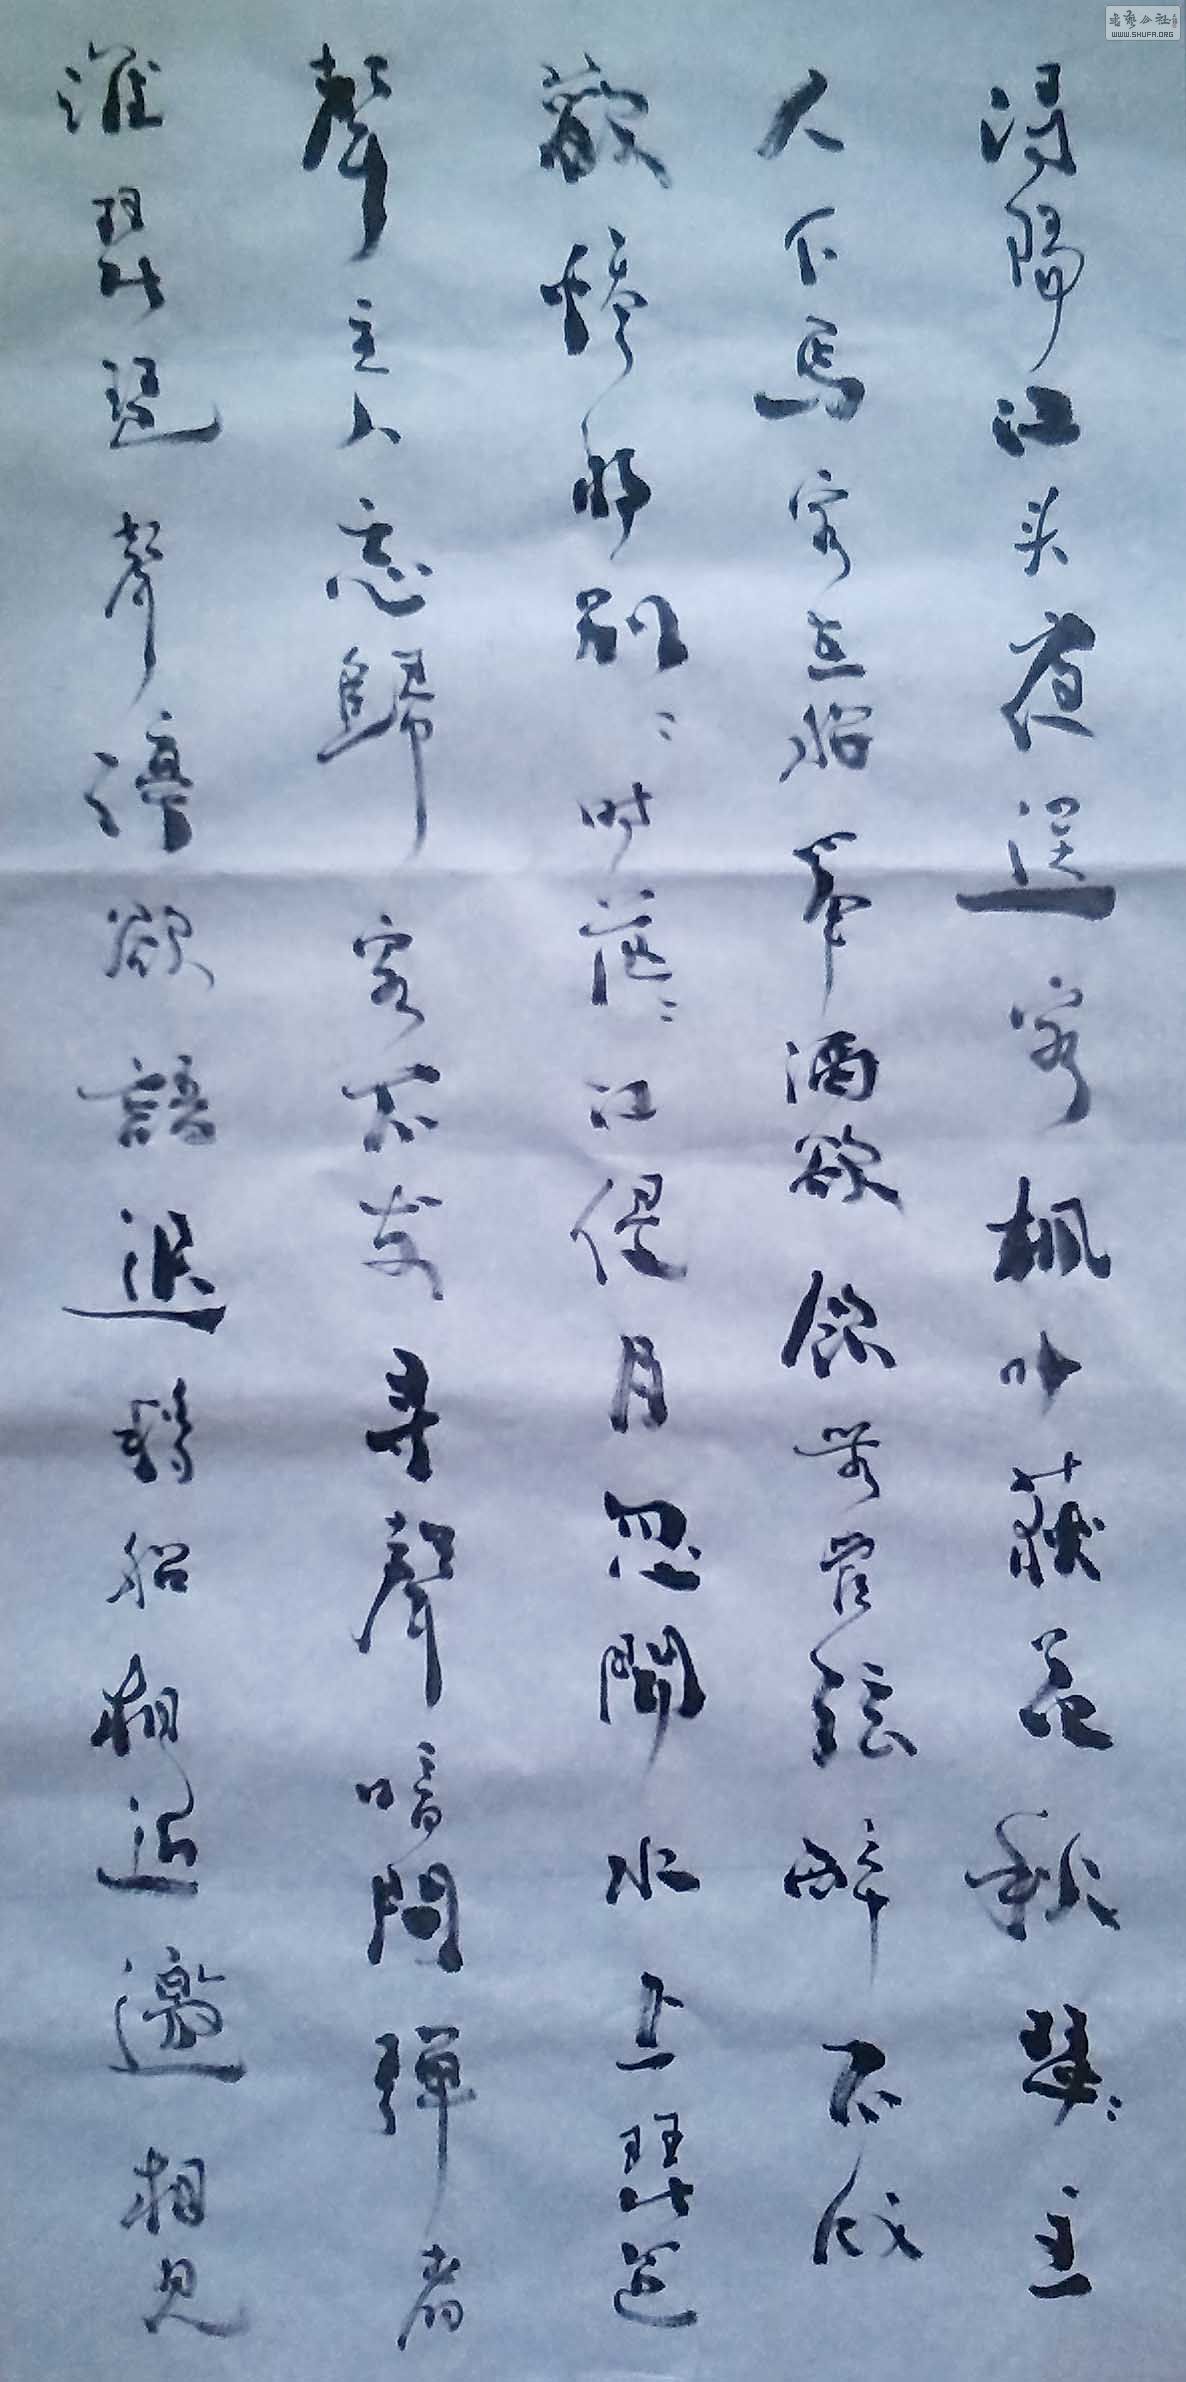 浔陽江头夜送客枫叶荻花秋瑟〻主
人下馬客在船舉酒欲飲無管絃醉不成
歡慘將別〻時茫〻江侵月忽聞水上琵琶
聲主人忘歸客不发寻聲暗問弹者
誰琵琶聲停欲語迟移船相近邀相見
老藝公社
WWW.SHUFA.ORG